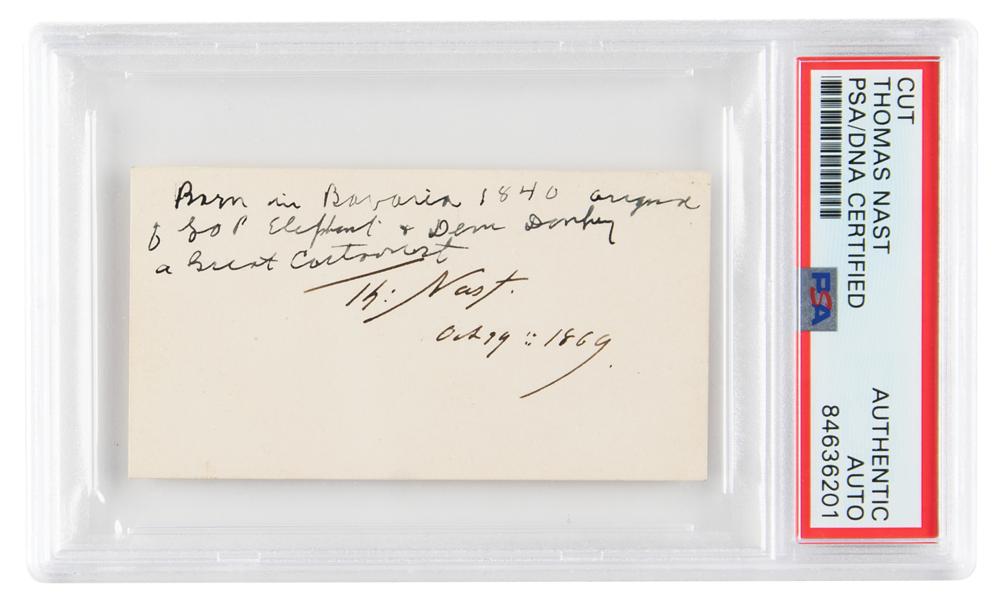 Born in Bavaria 1840 origin
of GOP Elephant & Dem Donkey
a Great Cartoonist
Th: Nast.
Oct 1869.
CUT
THOMAS NAST
PSA/DNA CERTIFIED
PSA
AUTHENTIC
AUTO
84636201